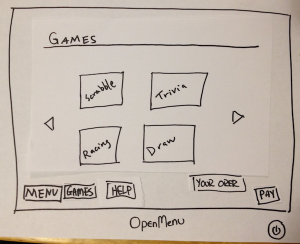 GAMES
Scrabble
Trivia
Racing
Draw
MENU
GAMES
HELP
YOUR ORER
PAY
OPENMENU